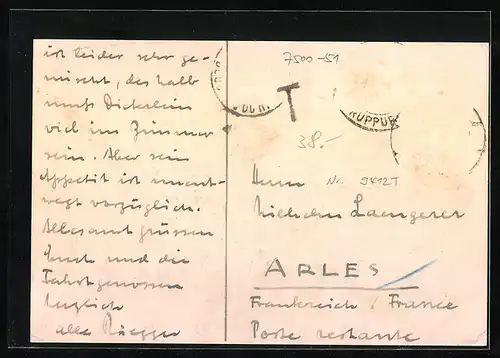 ist leider sehr ge-
mischt, deshalb
muss Dickerlein
viel im Zimmer
sein. Aber sein
Appetit ist unent-
wegt vorzüglich.
Allesamt grüssen
Euch und die
Fahrtgenossen
herzlich
alle Rüegger
7500-51
T
RUPPUR
38.-
Nr. 9412T
Herrn
Wilhelm Laengerer
ARLES
Frankreich / France
Poste restante